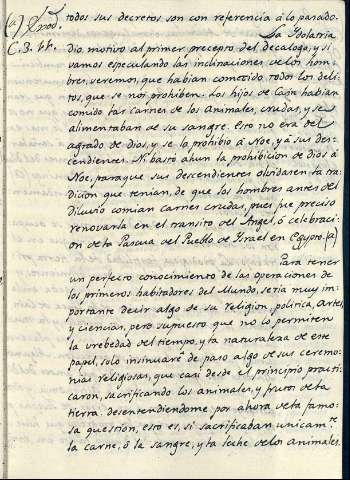 (a) Exod.
C. 3. vv.
todos sus decretos son con referencia á lo pasado.
La Ydolatria
dio motivo al primer precepto del decalogo, y si
vamos especulando las inclinaciones delos hom-
bres, veremos, que habian cometido todos los deli-
tos, que se nos prohiben. Los hijos de Cain habian
comido las carnes de los Animales, crudas, y se
alimentaban de su sangre. Esto no era del
agrado de dios, y se lo prohibió à Noe, y á sus des-
cendientes. Ni bastó ahun la prohibicion de dios á
Noe, paraque sus descendientes olvidasen la tra-
dicion que tenian, de que los hombres antes del
diluvio comian carnes crudas, pues fue preciso
renovarla en el transito del Angel, ó celebraci-
on dela Pascua del Pueblo de Israel en Egypto. (a)
Para tener
un perfecto conocimiento de las operaciones de
los primeros habitadores del Mundo, seria muy im-
portante decir algo de su religion, politica, Artes,
y ciencias, pero supuesto que no lo permiten
la brebedad del tiempo, y la naturaleza de este
papel, solo insinuaré de paso algo de sus ceremo-
nias religiosas, que casi desde el principio practi-
caron, sacrificando los animales, y frutos dela
tierra. desentendiendome por ahora dela famo-
sa question, esto es, si sacrificaban unicam.te
la carne, ó la sangre, y la leche delos animales.